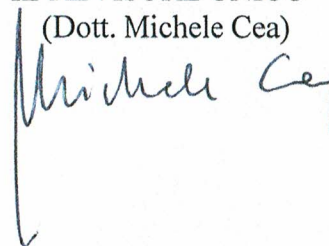 (Dott. Michele Cea)
Michele Ce